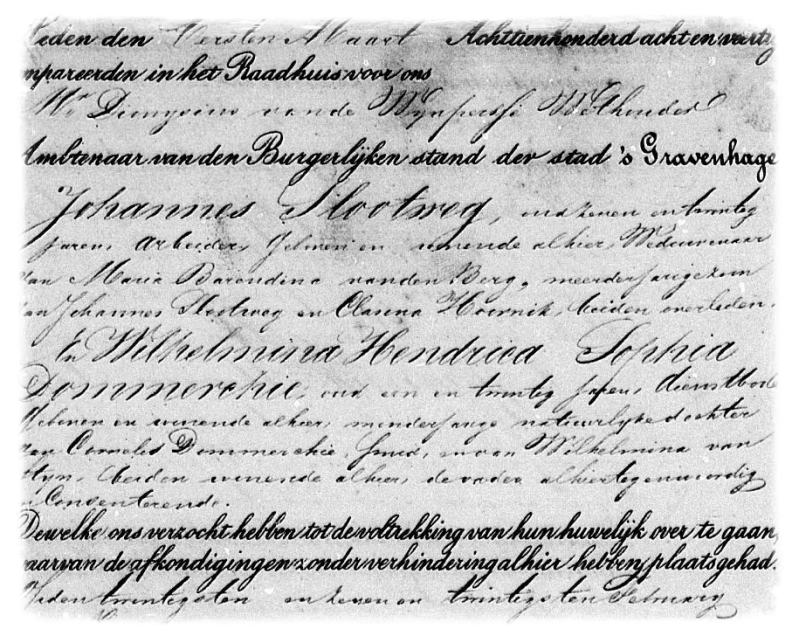 Heden den Eersten Maart Achttienhonderd acht en veertig
mpareerden in het Raadhuis voor ons
Mr Dionysius van de Wynpersse Wethouder
Ambtenaar van den Burgerlijken stand der stad 's Gravenhage
Johannes Slootweg, oud zeven en twintig
jaren, Arbeider, geboren en wonende alhier, Weduwenaar
van Maria Barendina van den Berg, meerderjarige zoon
van Johannes Slootweg en Clasina Hoornik, beiden overleden.
En Wilhelmina Hendrica Sophia
Dommerchie, oud een en twintig jaren, dienstbode
geboren en wonende alhier, minderjarige natuurlyke dochter
van Cornelis Dommerchie, smid, en van Wilhelmina van
beiden wonende alhier, de vader alhier tegenwoordig
en Consenterende.
Dewelke ons verzocht hebben tot de voltrekking van hun huwelijk over te gaan,
aarvan de afkondigingen zonder verhindering alhier hebben plaats gehad.
den twintigsten en zeven en twintigsten February